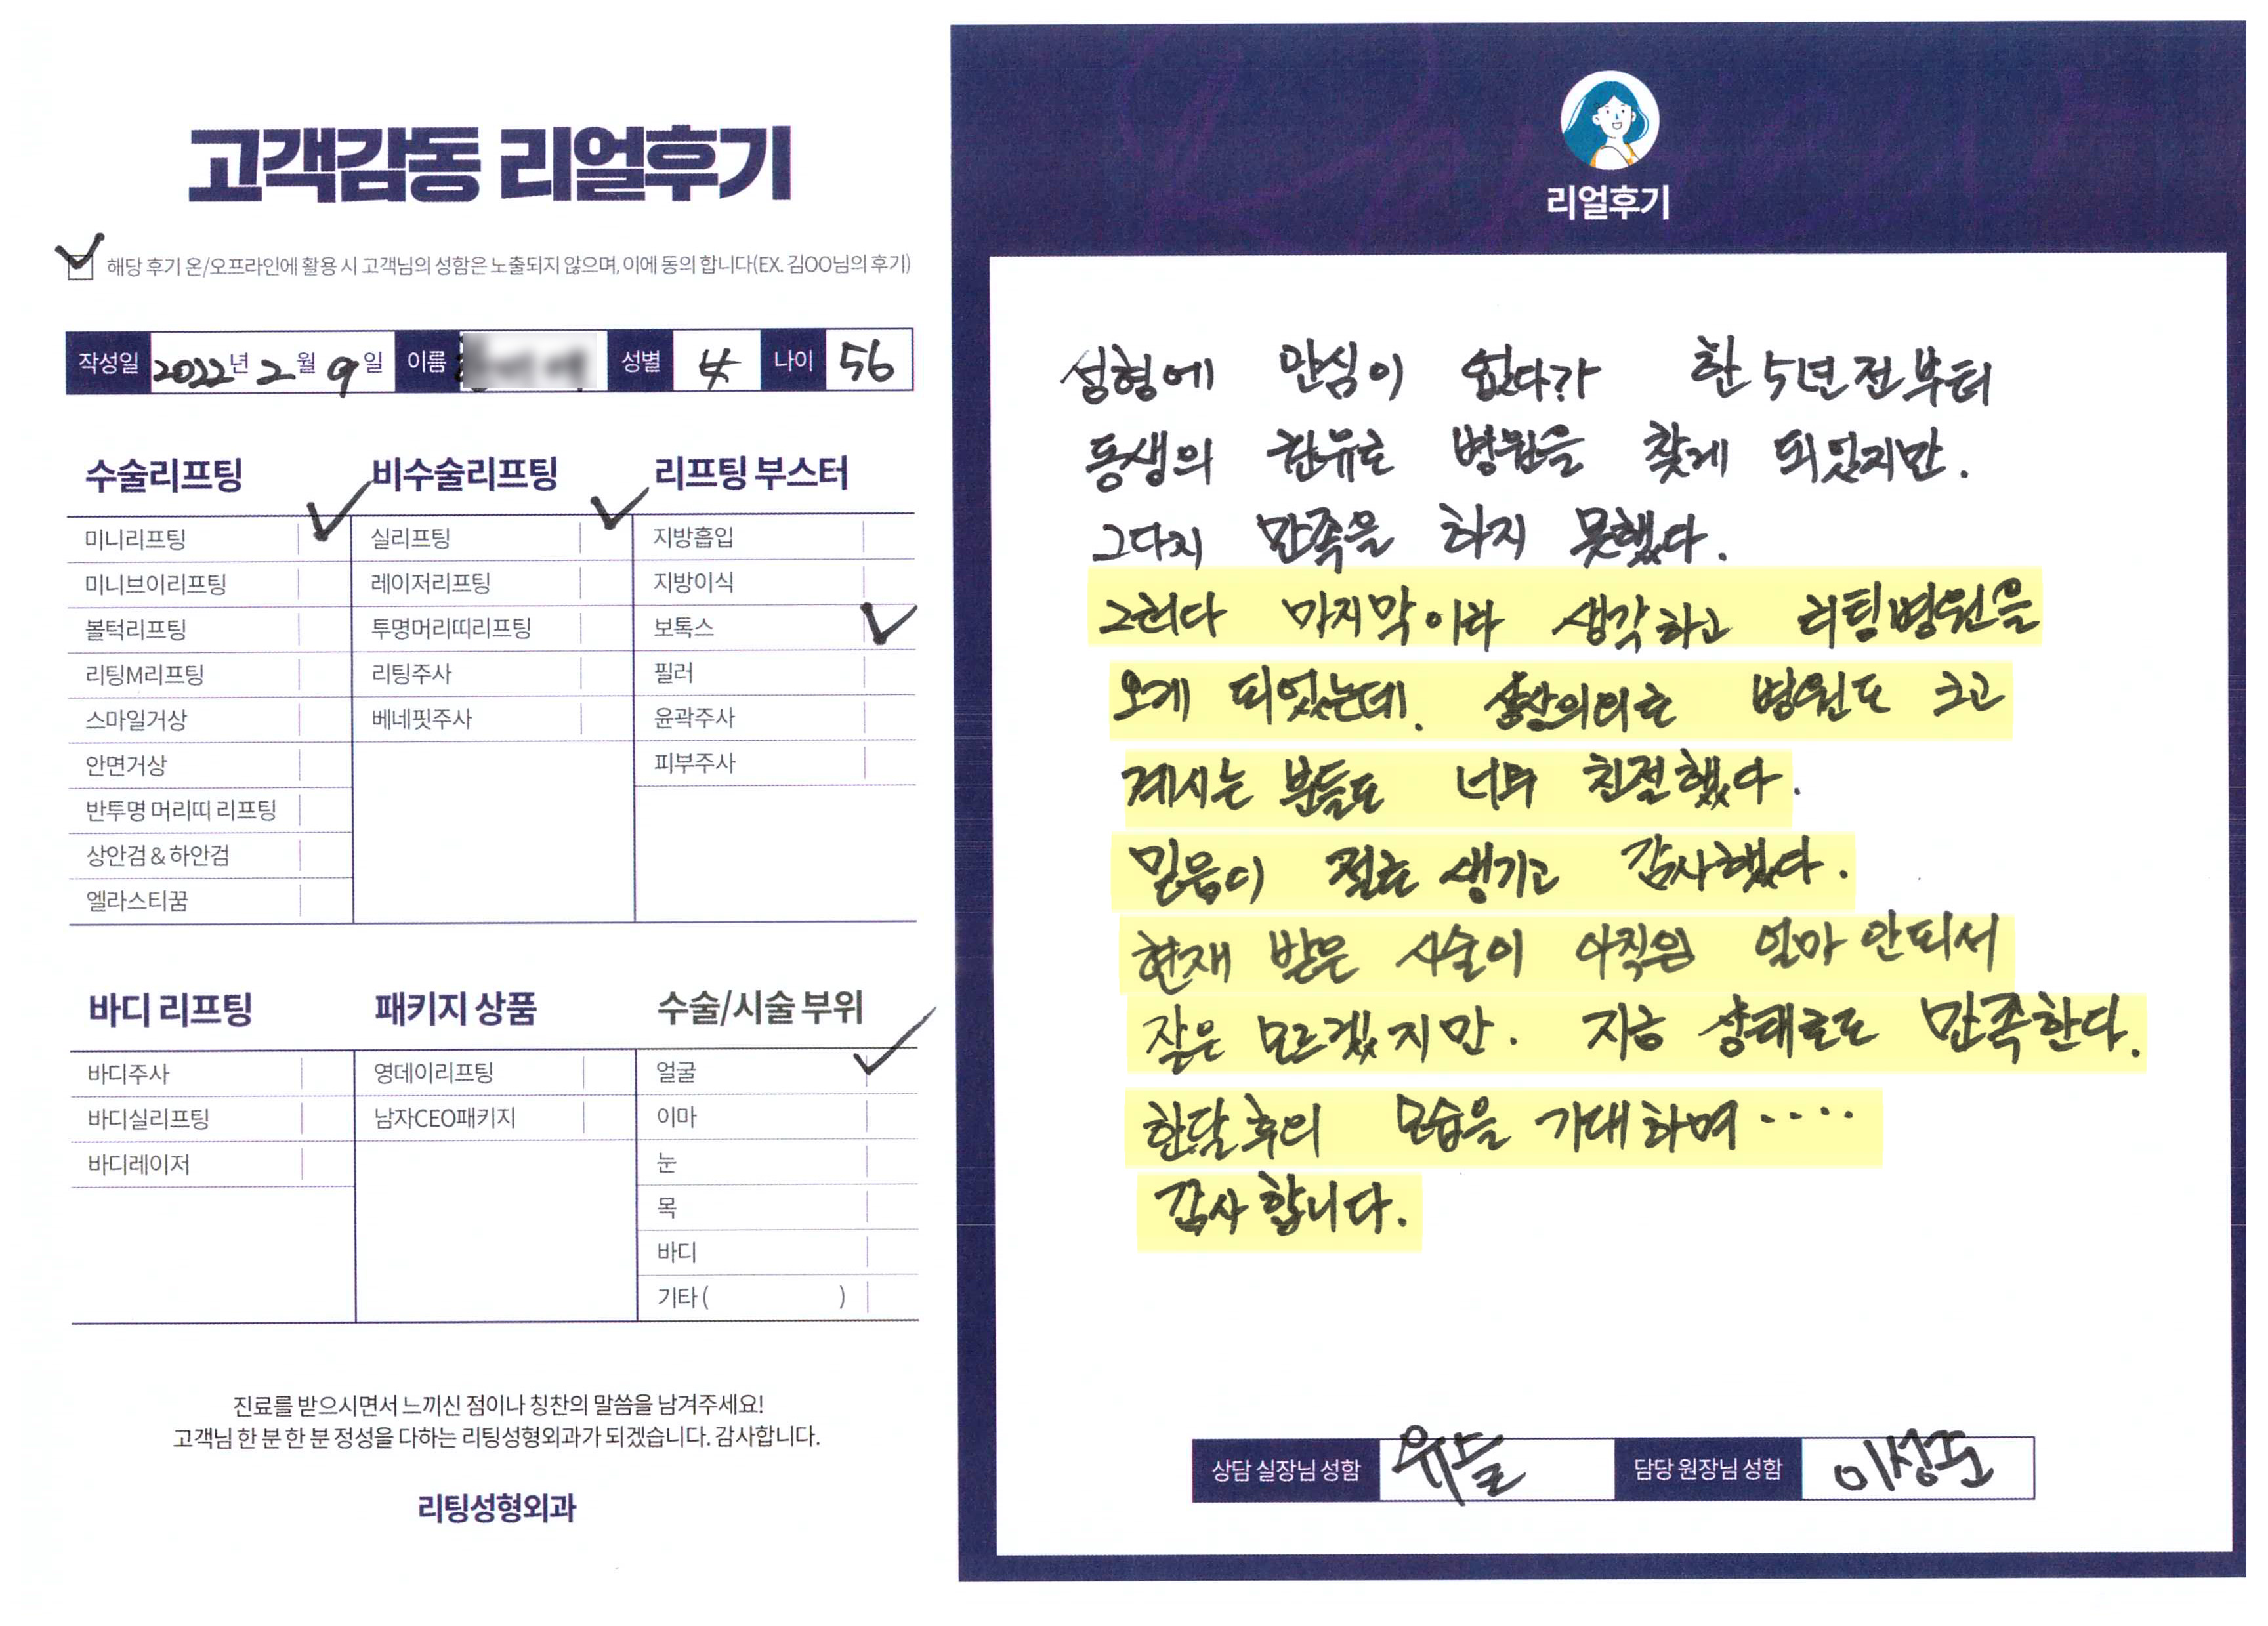 고객감동 리얼후기
해당 후기 온/오프라인에 활용 시 고객님의 성함은 노출되지 않으며, 이에 동의 합니다(EX. 김OO님의 후기)
작성일 2022년 2월 9일 이름 성별 女 나이 56
수술리프팅
미니리프팅
미니브이리프팅
볼턱리프팅
리팅M리프팅
스마일거상
안면거상
반투명 머리띠 리프팅
상안검&하안검
엘라스티꿈
비수술리프팅
실리프팅
레이저리프팅
투명머리띠리프팅
리팅주사
베네핏주사
리프팅 부스터
지방흡입
지방이식
보톡스
필러
윤곽주사
피부주사
바디 리프팅
바디주사
바디실리프팅
바디레이저
패키지 상품
영데이리프팅
남자CEO패키지
수술/시술 부위
얼굴
이마
눈
목
바디
기타 ( )
진료를 받으시면서 느끼신 점이나 칭찬의 말씀을 남겨주세요!
고객님 한 분 한 분 정성을 다하는 리팅성형외과가 되겠습니다. 감사합니다.
리팅성형외과
리얼후기
성형에 관심이 없다가 한 5년전부터
동생의 권유로 병원을 찾게 되었지만.
그다지 만족을 하지 못했다.
그러다 마지막이라 생각하고 리팅병원을
오게 되었는데. 생각의외로 병원도 크고
계시는 분들도 너무 친절했다.
믿음이 절로 생기고 감사했다.
현재 받은 시술이 아직은 얼마 안되서
잘은 모르겠지만. 지금 상태로도 만족한다.
한달후의 모습을 기대하며‥‥
감사합니다.
상담 실장님 성함 담당 원장님 성함 이성준